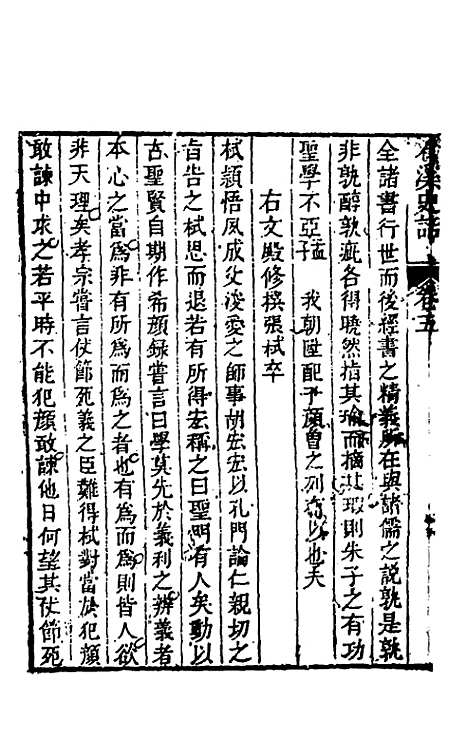 溪史話 卷五
全諸書行世而後經書之精義所在與諸儒之說孰是孰
非孰醇孰疵各得曉然指其瑜而摘其瑕則朱子之有功
聖學不亞孟 我朝躋配于顏曾之列有以也夫
右文殿修撰張栻卒
栻頴悟夙成父浚愛之師事胡宏宏以孔門論仁親切之
旨告之栻思而退若有所得宏稱之曰聖門有人矣動以
古聖賢自期作希顏錄嘗言曰學莫先於義利之辨義者
本心之當爲非有所爲而爲之者也有爲而爲則皆人欲
非天理矣孝宗嘗言伏節死義之臣難得栻對當於犯顏
敢諫中求之若平時不能犯顏敢諫他日何望其仗節死